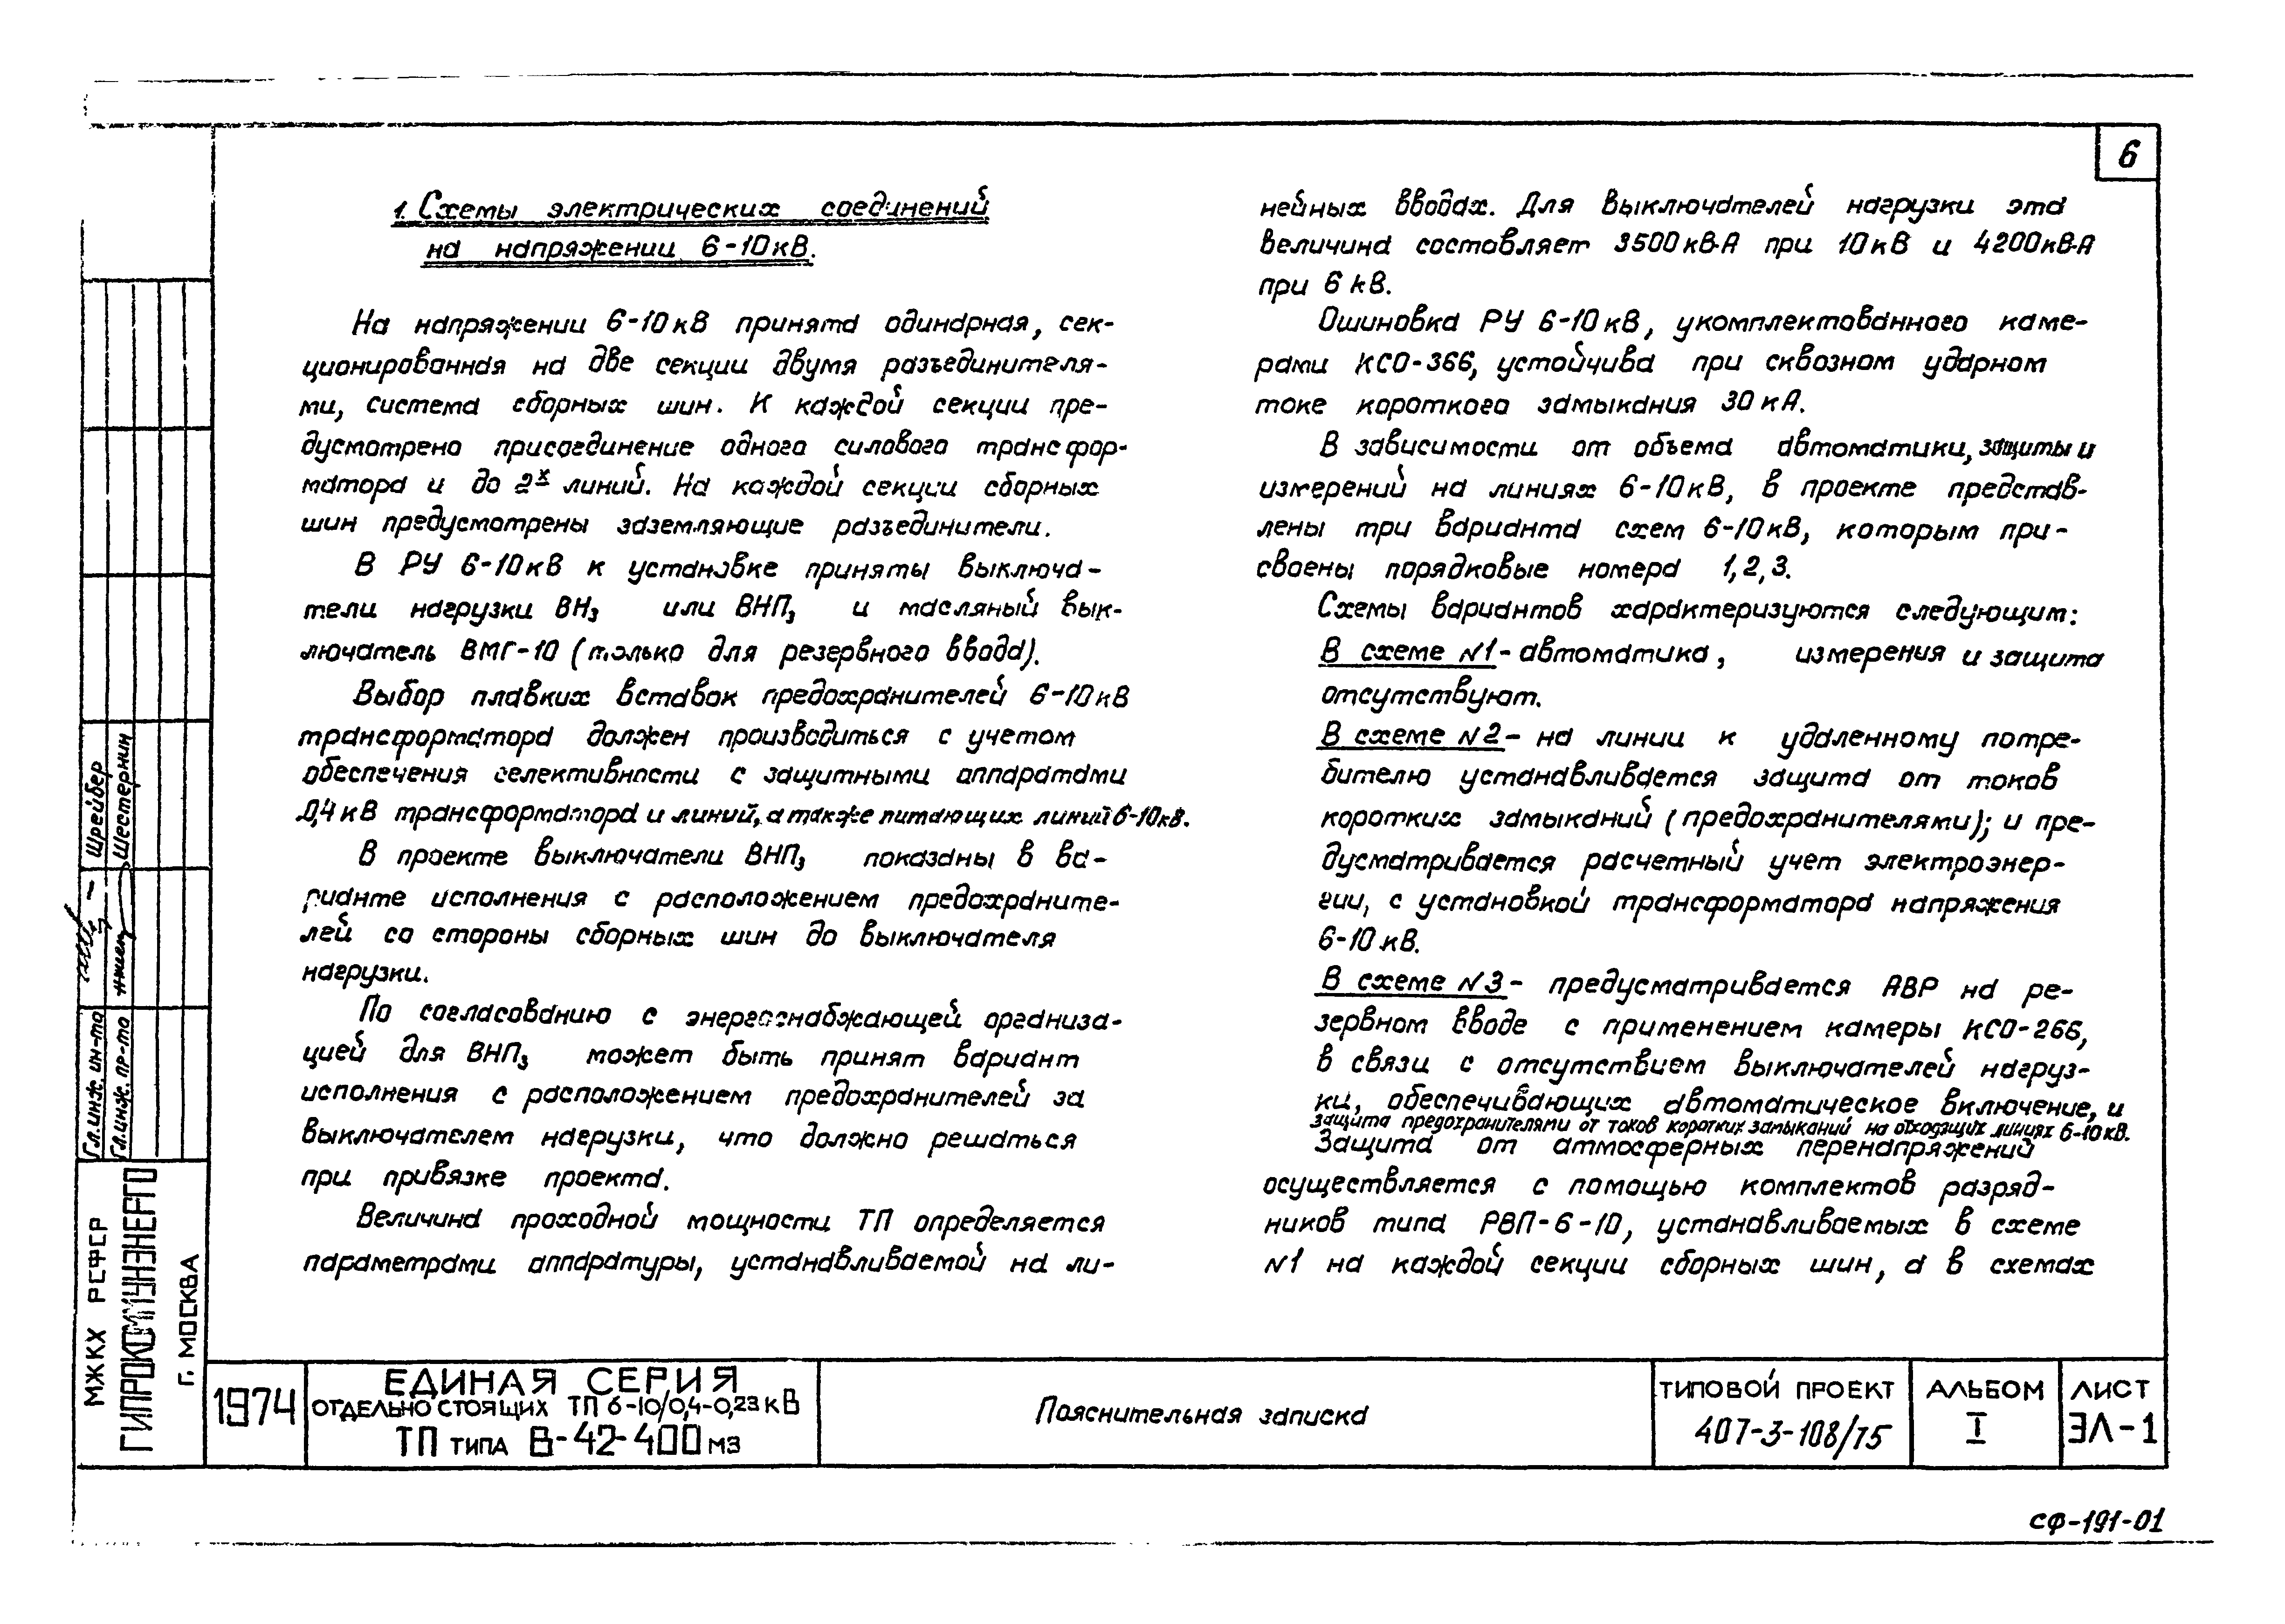 6
1. Схемы электрических соединений
на напряжении 6-10кВ.
На напряжении 6-10кВ принята одинарная, сек-
ционированная на две секции двумя разъединителя-
ми, система сборных шин. К каждой секции пре-
дусмотрено присоединение одного силового трансфор-
матора и до 2х линий. На каждой секции сборных
шин предусмотрены заземляющие разъединители.
В РУ 6-10кВ к установке приняты выключа-
тели нагрузки ВН3 или ВНП3 и масляный вык-
лючатель ВМГ-10 (только для резервного ввода).
Выбор плавких вставок предохранителей 6-10кВ
трансформатора должен производиться с учетом
обеспечения селективности с защитными аппаратами
0,4кВ трансформатора и линий, а также питающих линий 6-10кВ.
В проекте выключатели ВНП3 показаны в ва-
рианте исполнения с расположением предохраните-
лей со стороны сборных шин до выключателя
нагрузки.
По согласованию с энергоснабжающей организа-
цией для ВНП3 может быть принят вариант
исполнения с расположением предохранителей за
выключателем нагрузки, что должно решаться
при привязке проекта.
Величина проходной мощности ТП определяется
параметрами аппаратуры, устанавливаемой на ли-
нейных вводах. Для выключателей нагрузки эта
величина составляет 3500кВ·А при 10кВ и 4200кВ·А
при 6 кВ.
Ошиновка РУ 6-10кВ, укомплектованного каме-
рами КСО-366, устойчива при сквозном ударном
токе короткого замыкания 30кА.
В зависимости от объема автоматики, защиты и
измерений на линиях 6-10кВ, в проекте представ-
лены три варианта схем 6-10кВ, которым при-
своены порядковые номера 1, 2, 3.
Схемы вариантов характеризуются следующим:
В схеме N1 - автоматика, измерения и защита
отсутствуют.
В схеме N2 - на линии к удаленному потре-
бителю устанавливается защита от токов
коротких замыканий (предохранителями); и пре-
дусматривается расчетный учет электроэнер-
гии, с установкой трансформатора напряжения
6-10кВ.
В схеме N3 - предусматривается АВР на ре-
зервном вводе с применением камеры КСО-266,
в связи с отсутствием выключателей нагруз-
ки, обеспечивающих автоматическое включение, и
защита предохранителями от токов коротких замыканий на отходящих линиях 6-10кВ.
Защита от атмосферных перенапряжений
осуществляется с помощью комплектов разряд-
ников типа РВП-6-10, устанавливаемых в схеме
N1 на каждой секции сборных шин, а в схемах
Гл.инж. ин-та Шрейбер
Гл.инж. пр-та Шестернин
МЖКХ РСФСР
ГИПРОКОММУНЭНЕРГО
Г. МОСКВА
1974
ЕДИНАЯ СЕРИЯ
ОТДЕЛЬНО СТОЯЩИХ ТП 6-10/0,4-0,23кВ
ТП ТИПА В-42-400 М3
Пояснительная записка
ТИПОВОЙ ПРОЕКТ
407-3-108/75
АЛЬБОМ
I
ЛИСТ
ЭЛ-1
СФ-191-01